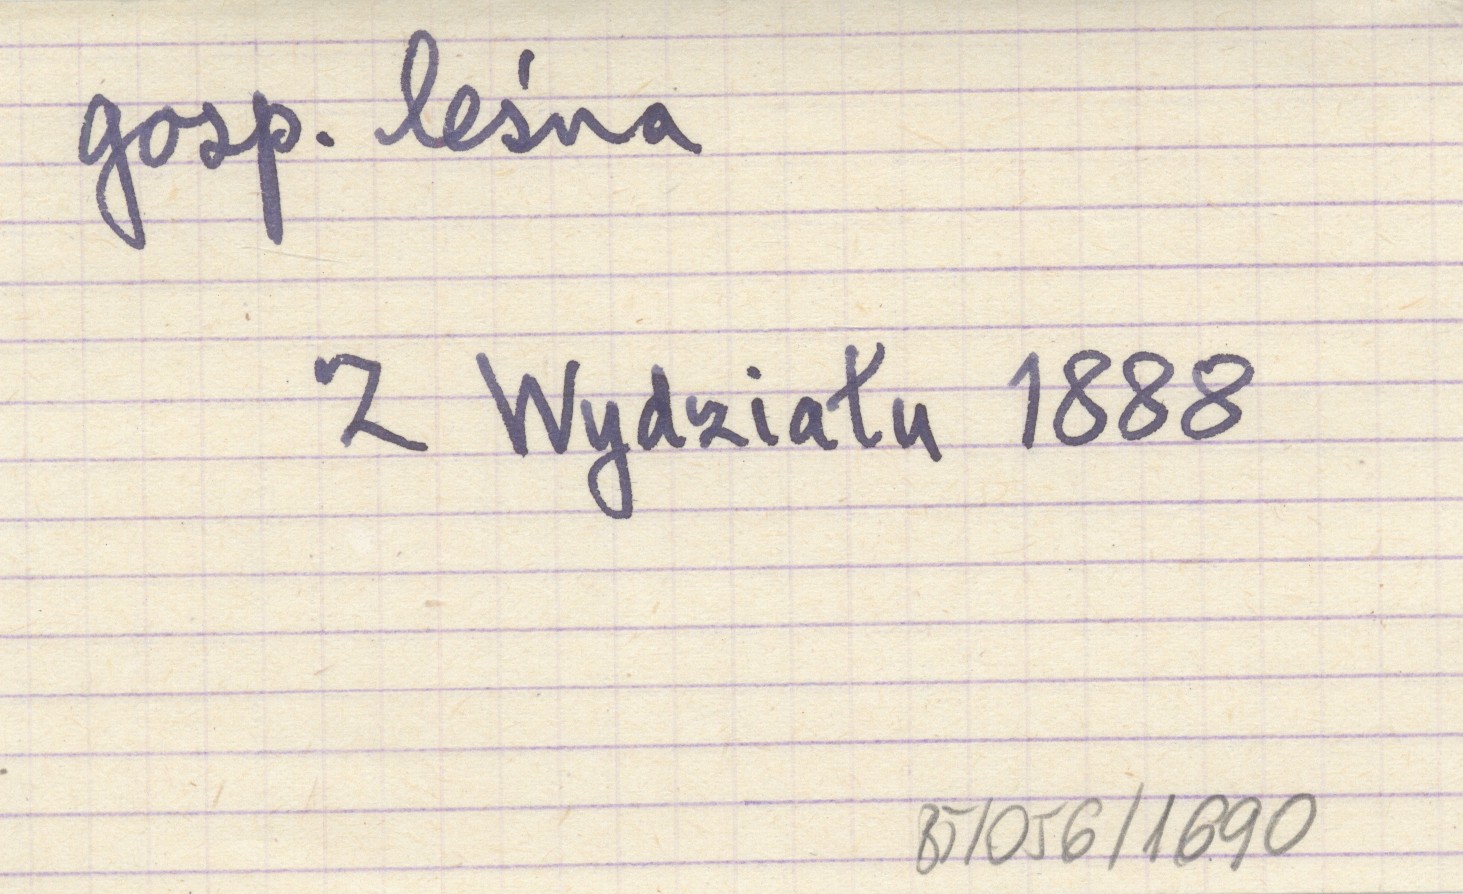 gosp. leśna
Z Wydziału 1888
BJ/056/1690